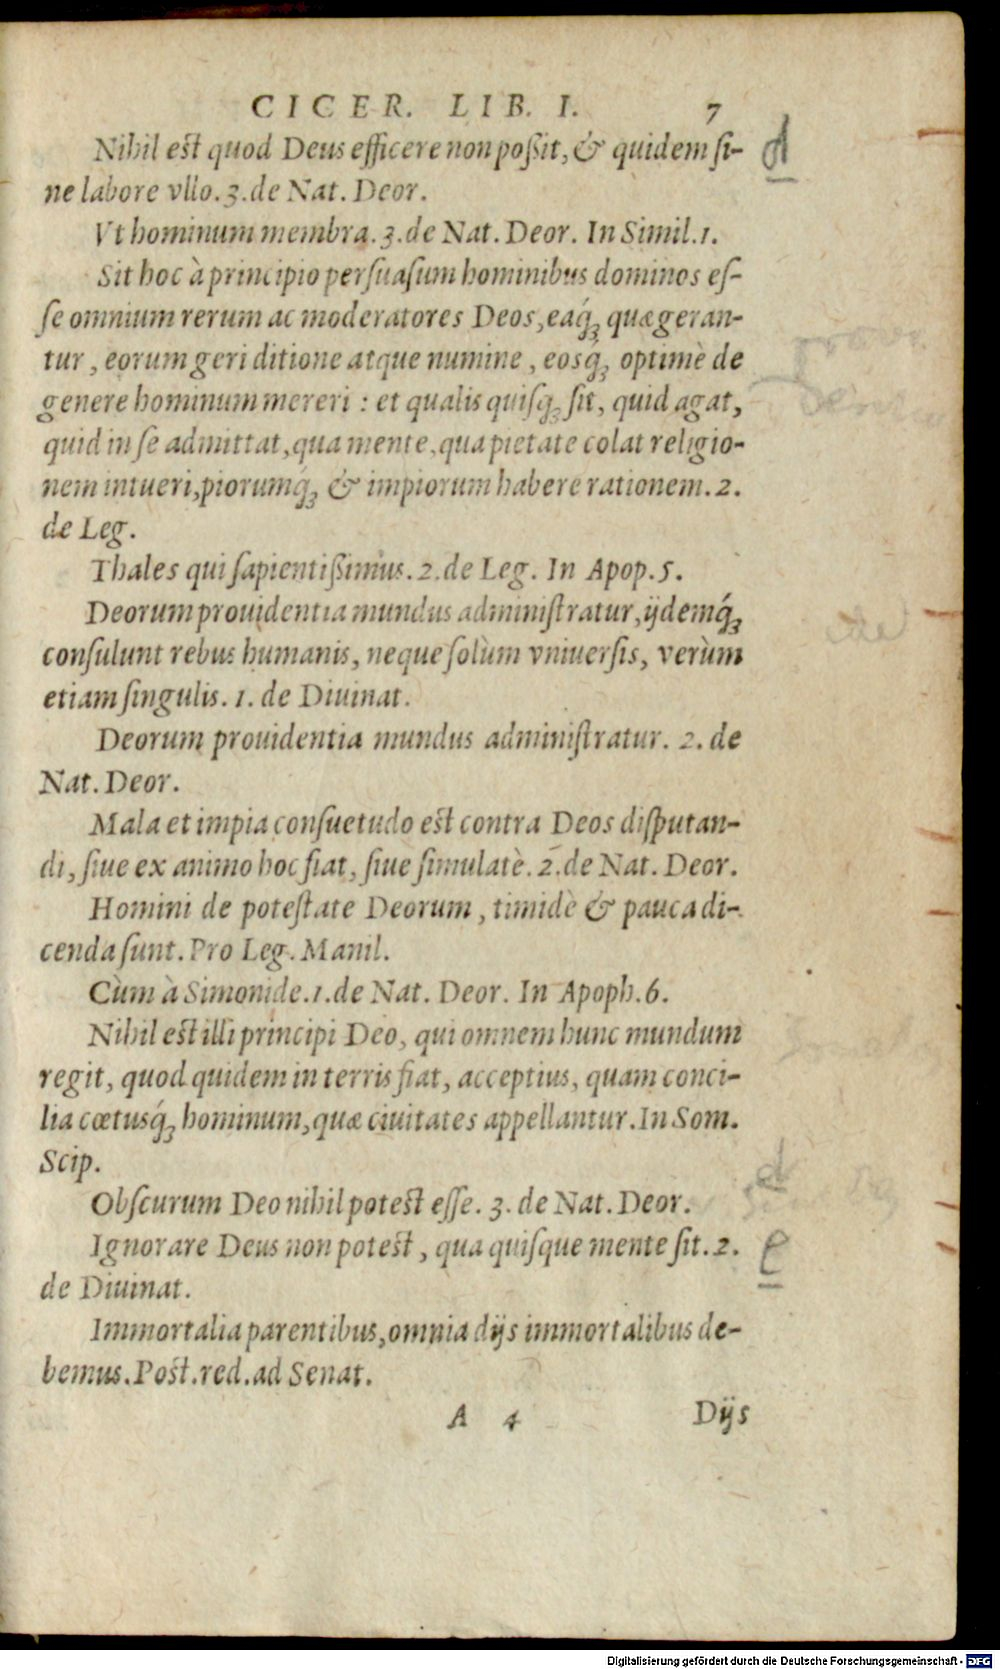 CICER. LIB. I. 7
Nihil est quod Deus efficere non poßit, & quidem ſi-
ne labore vllo. 3. de Nat. Deor.
Vt hominum membra. 3. de Nat. Deor. In Simil. 1.
Sit hoc à principio perſuaſum hominibus dominos eſ-
ſe omnium rerum ac moderatores Deos, eaq́ꝫ quæ geran-
tur, eorum geri ditione atque numine, eosq́ꝫ optimè de
genere hominum mereri: et qualis quiſqꝫ ſit, quid agat,
quid in ſe admittat, qua mente, qua pietate colat religio-
nem intueri, piorumq́ꝫ & impiorum habere rationem. 2.
de Leg.
Thales qui ſapientißimus. 2. de Leg. In Apop. 5.
Deorum prouidentia mundus adminiſtratur, ijdemq́ꝫ
conſulunt rebus humanis, neque ſolùm vniuerſis, verùm
etiam ſingulis. 1. de Diuinat.
Deorum prouidentia mundus adminiſtratur. 2. de
Nat. Deor.
Mala et impia conſuetudo est contra Deos diſputan-
di, ſiue ex animo hoc fiat, ſiue ſimulatè. 2. de Nat. Deor.
Homini de poteſtate Deorum, timidè & pauca di-
cenda ſunt. Pro Leg. Manil.
Cùm à Simonide. 1. de Nat. Deor. In Apoph. 6.
Nihil est illi principi Deo, qui omnem hunc mundum
regit, quod quidem in terris fiat, acceptius, quam conci-
lia cœtusq́ꝫ hominum, quæ ciuitates appellantur. In Som.
Scip.
Obſcurum Deo nihil potest eſſe. 3. de Nat. Deor.
Ignorare Deus non potest, qua quiſque mente ſit. 2.
de Diuinat.
Immortalia parentibus, omnia dijs immortalibus de-
bemus. Post. red. ad Senat.
A 4 Dijs
d
d
e
Digitalisierung gefördert durch die Deutsche Forschungsgemeinschaft - DFG